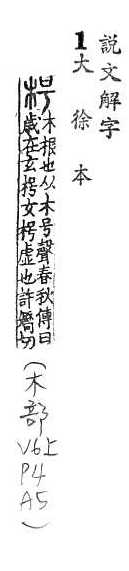 説文解字
1大徐本
枵木根也从木号聲春秋傳曰
歲在玄枵玄枵虚也許嬌切
(木部
V6上
P4
A5)